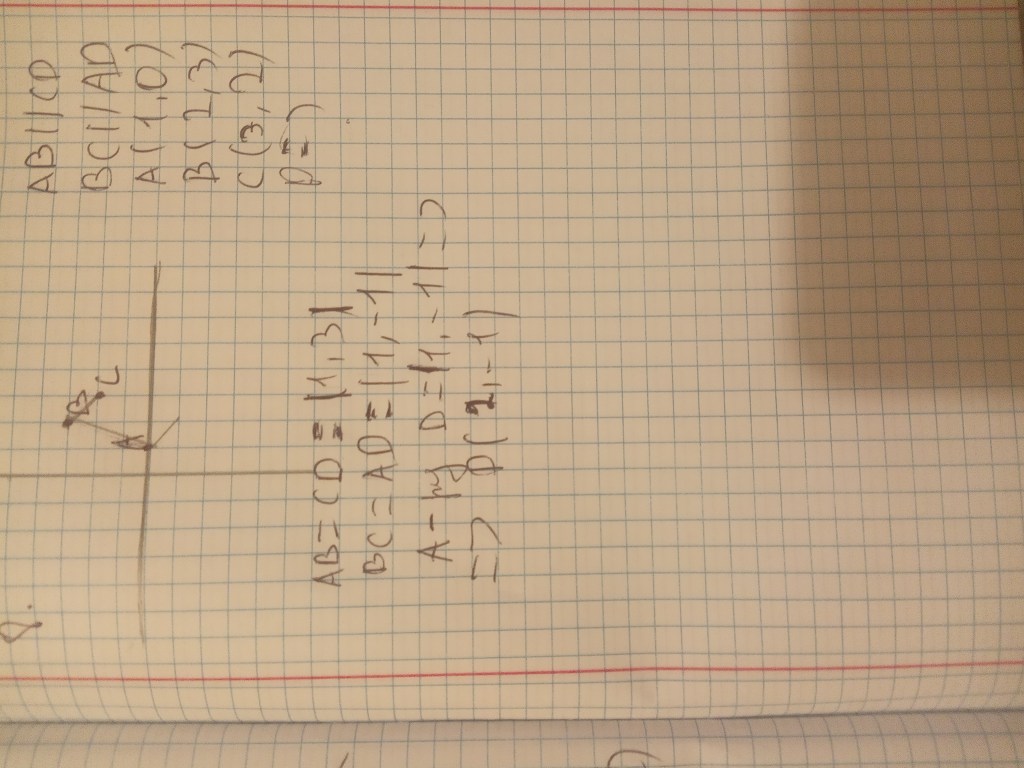 8.
A
B
C
AB||CD
BC||AD
A(1,0)
B(2,3)
C(3,2)
D=)
AB=CD=|1,3|
BC=AD=|1,-1|
D=|1,-1|=>
=> D(2,-1)